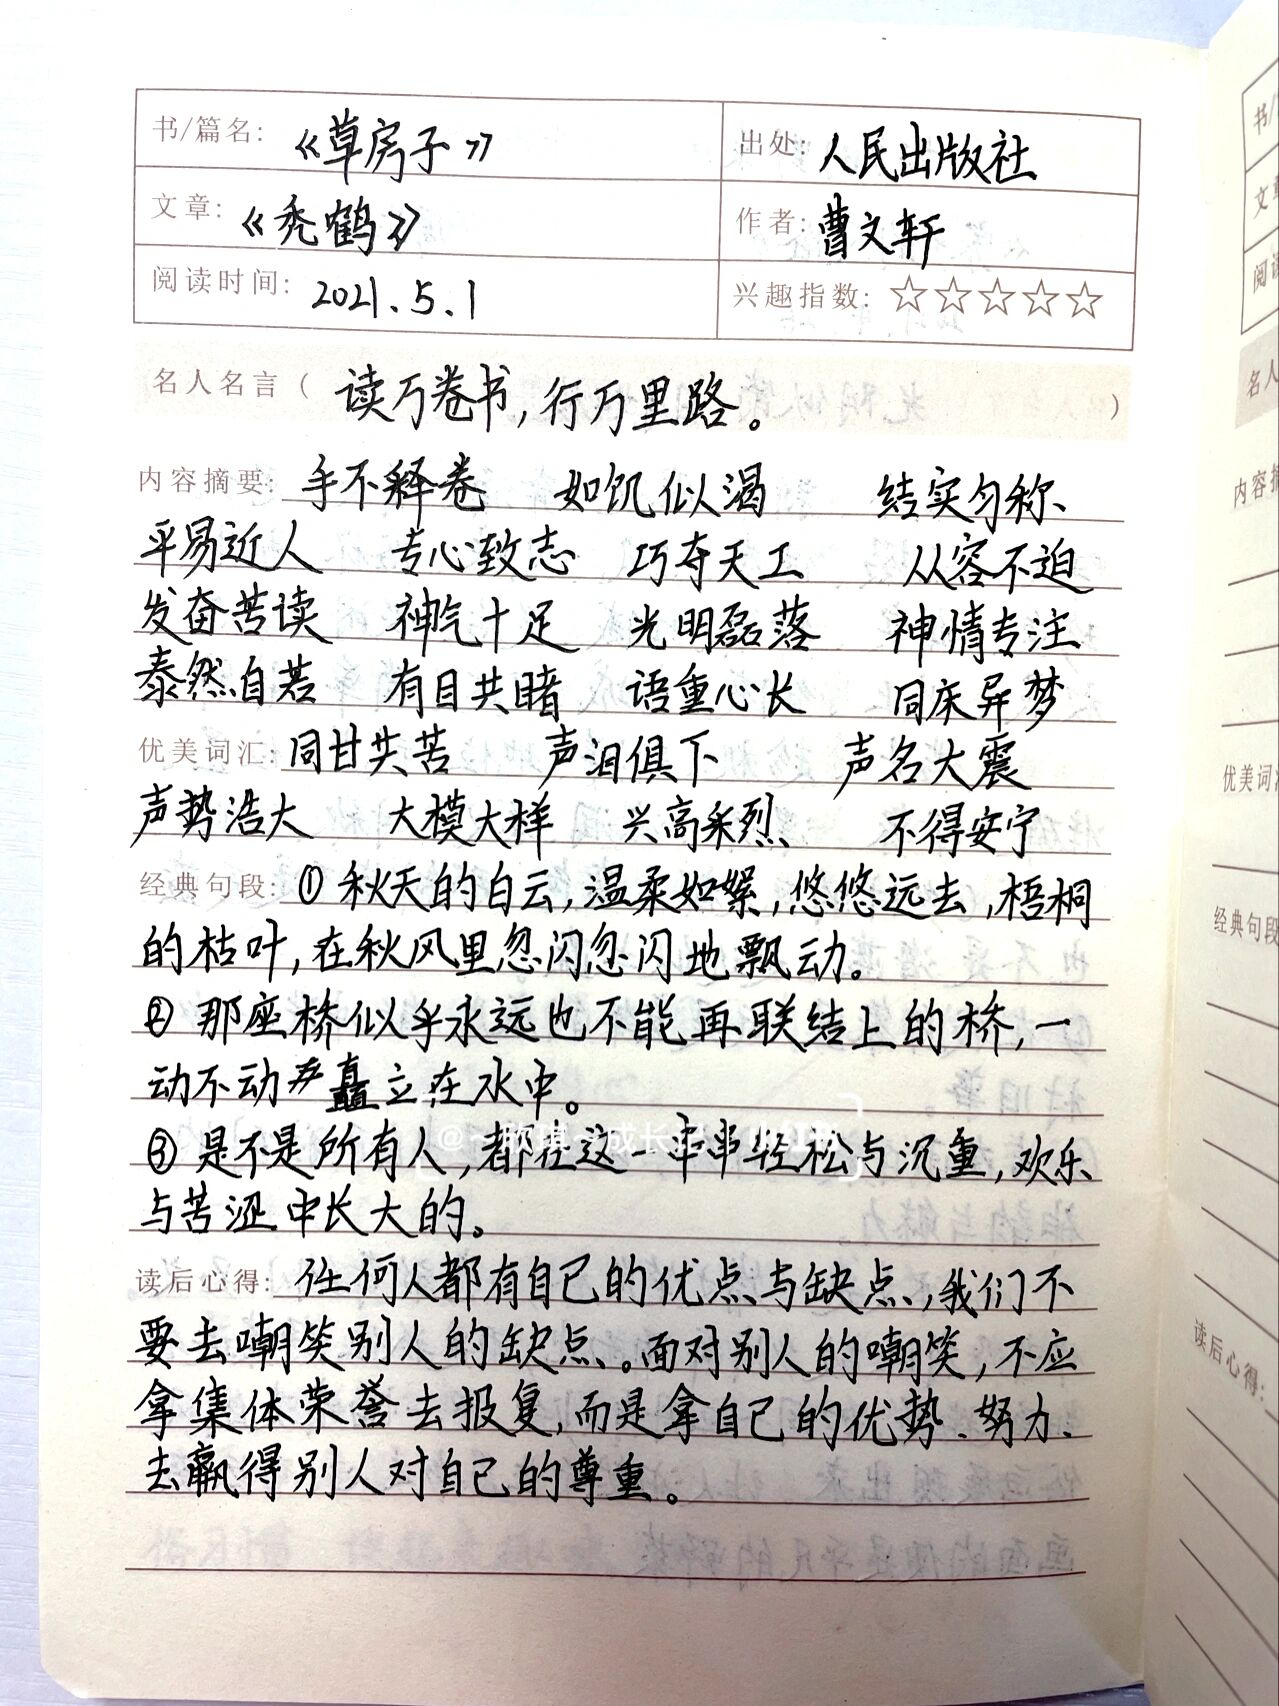 书/篇名: 《草房子》 出处: 人民出版社
文章: 《秃鹤》 作者: 曹文轩
阅读时间: 2021.5.1 兴趣指数: ☆☆☆☆☆
名人名言( 读万卷书,行万里路。 )
内容摘要: 手不释卷 如饥似渴 结实匀称、
平易近人 专心致志 巧夺天工 从容不迫
发奋苦读 神气十足 光明磊落 神情专注
泰然自若 有目共睹 语重心长 同床异梦
优美词汇: 同甘共苦 声泪俱下 声名大震
声势浩大 大模大样 兴高采烈、 不得安宁
经典句段: ①秋天的白云,温柔如絮,悠悠远去,梧桐
的枯叶,在秋风里忽闪忽闪地飘动。
②那座桥似乎永远也不能再联结上的桥,一
动不动 矗立在水中。
③是不是所有人,都在这一串串轻松与沉重,欢乐
与苦涩中长大的。
读后心得: 任何人都有自己的优点与缺点,我们不
要去嘲笑别人的缺点、。面对别人的嘲笑,不应
拿集体荣誉去报复,而是拿自己的优势、努力、
去赢得别人对自己的尊重。
书/
文章
阅读
名人
内容摘
优美词
经典句段
读后心得: